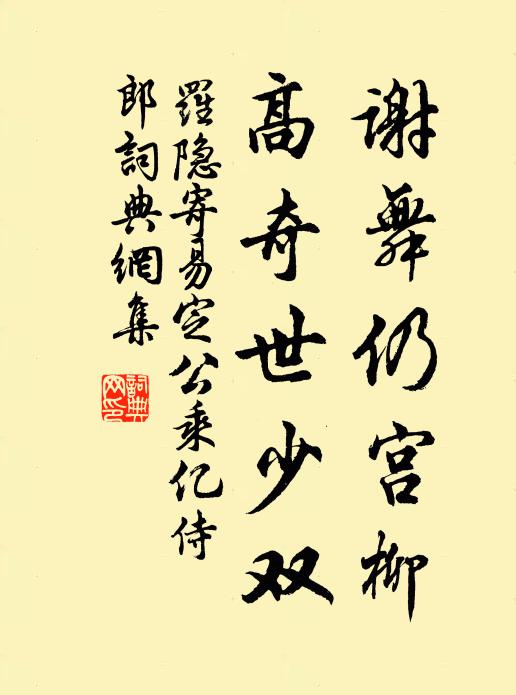 谢舞仍宫柳
高奇世少双
羅隐寄易定公乘亿侍
郎詞典網集
詞典
网印